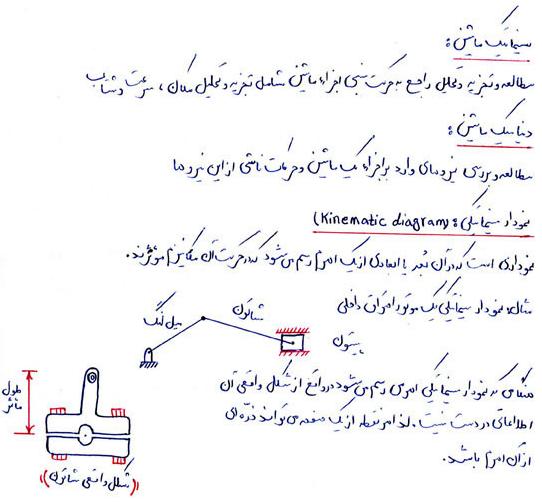 سینماتیک ماشین:
مطالعه و تجزیه و تحلیل راجع به حرکت نسبی اجزاء ماشین شامل تجزیه و تحلیل مکان، سرعت و شتاب
دینامیک ماشین:
مطالعه و بررسی نیروهای وارد بر اجزاء یک ماشین و حرکات ناشی از این نیروها
نمودار سینماتیکی: (Kinematic diagram)
نموداری است که در آن بُعد یا ابعادی از یک اهرم رسم می‌شود که در حرکت آن مکانیزم موثرند.
مثال: نمودار سینماتیکی یک موتور احتراق داخلی
میل لنگ
شاتون
پیستون
هنگامی که نمودار سینماتیکی اهرمی رسم می‌شود در واقع از شکل واقعی آن
اطلاعاتی در دست نیست. لذا هر نقطه از یک صفحه می‌تواند ذره‌ای
از آن اهرم باشد.
طول
مؤثر
((شکل واقعی شاتون))